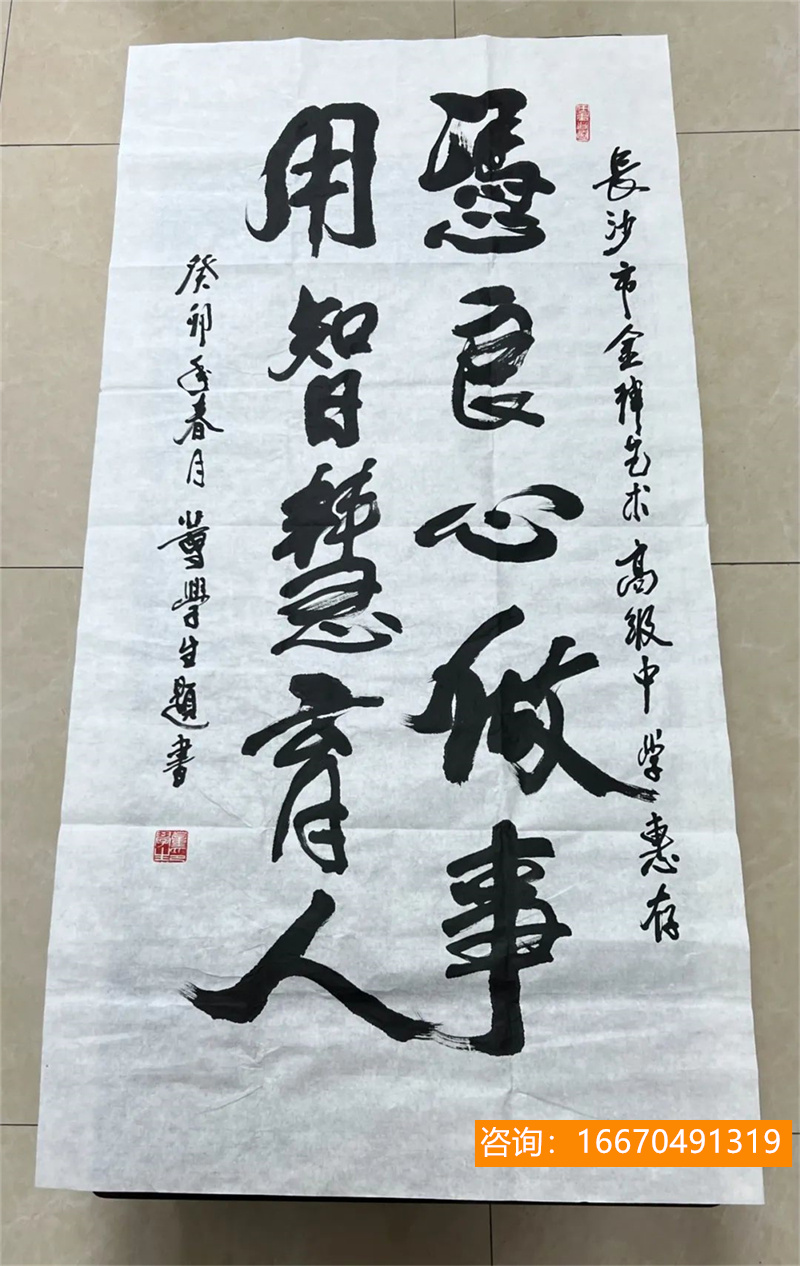 長沙市金艺术高级中学惠存
憑良心做事
用智慧育人
癸卯年春月 學生題書
咨询：16670491319